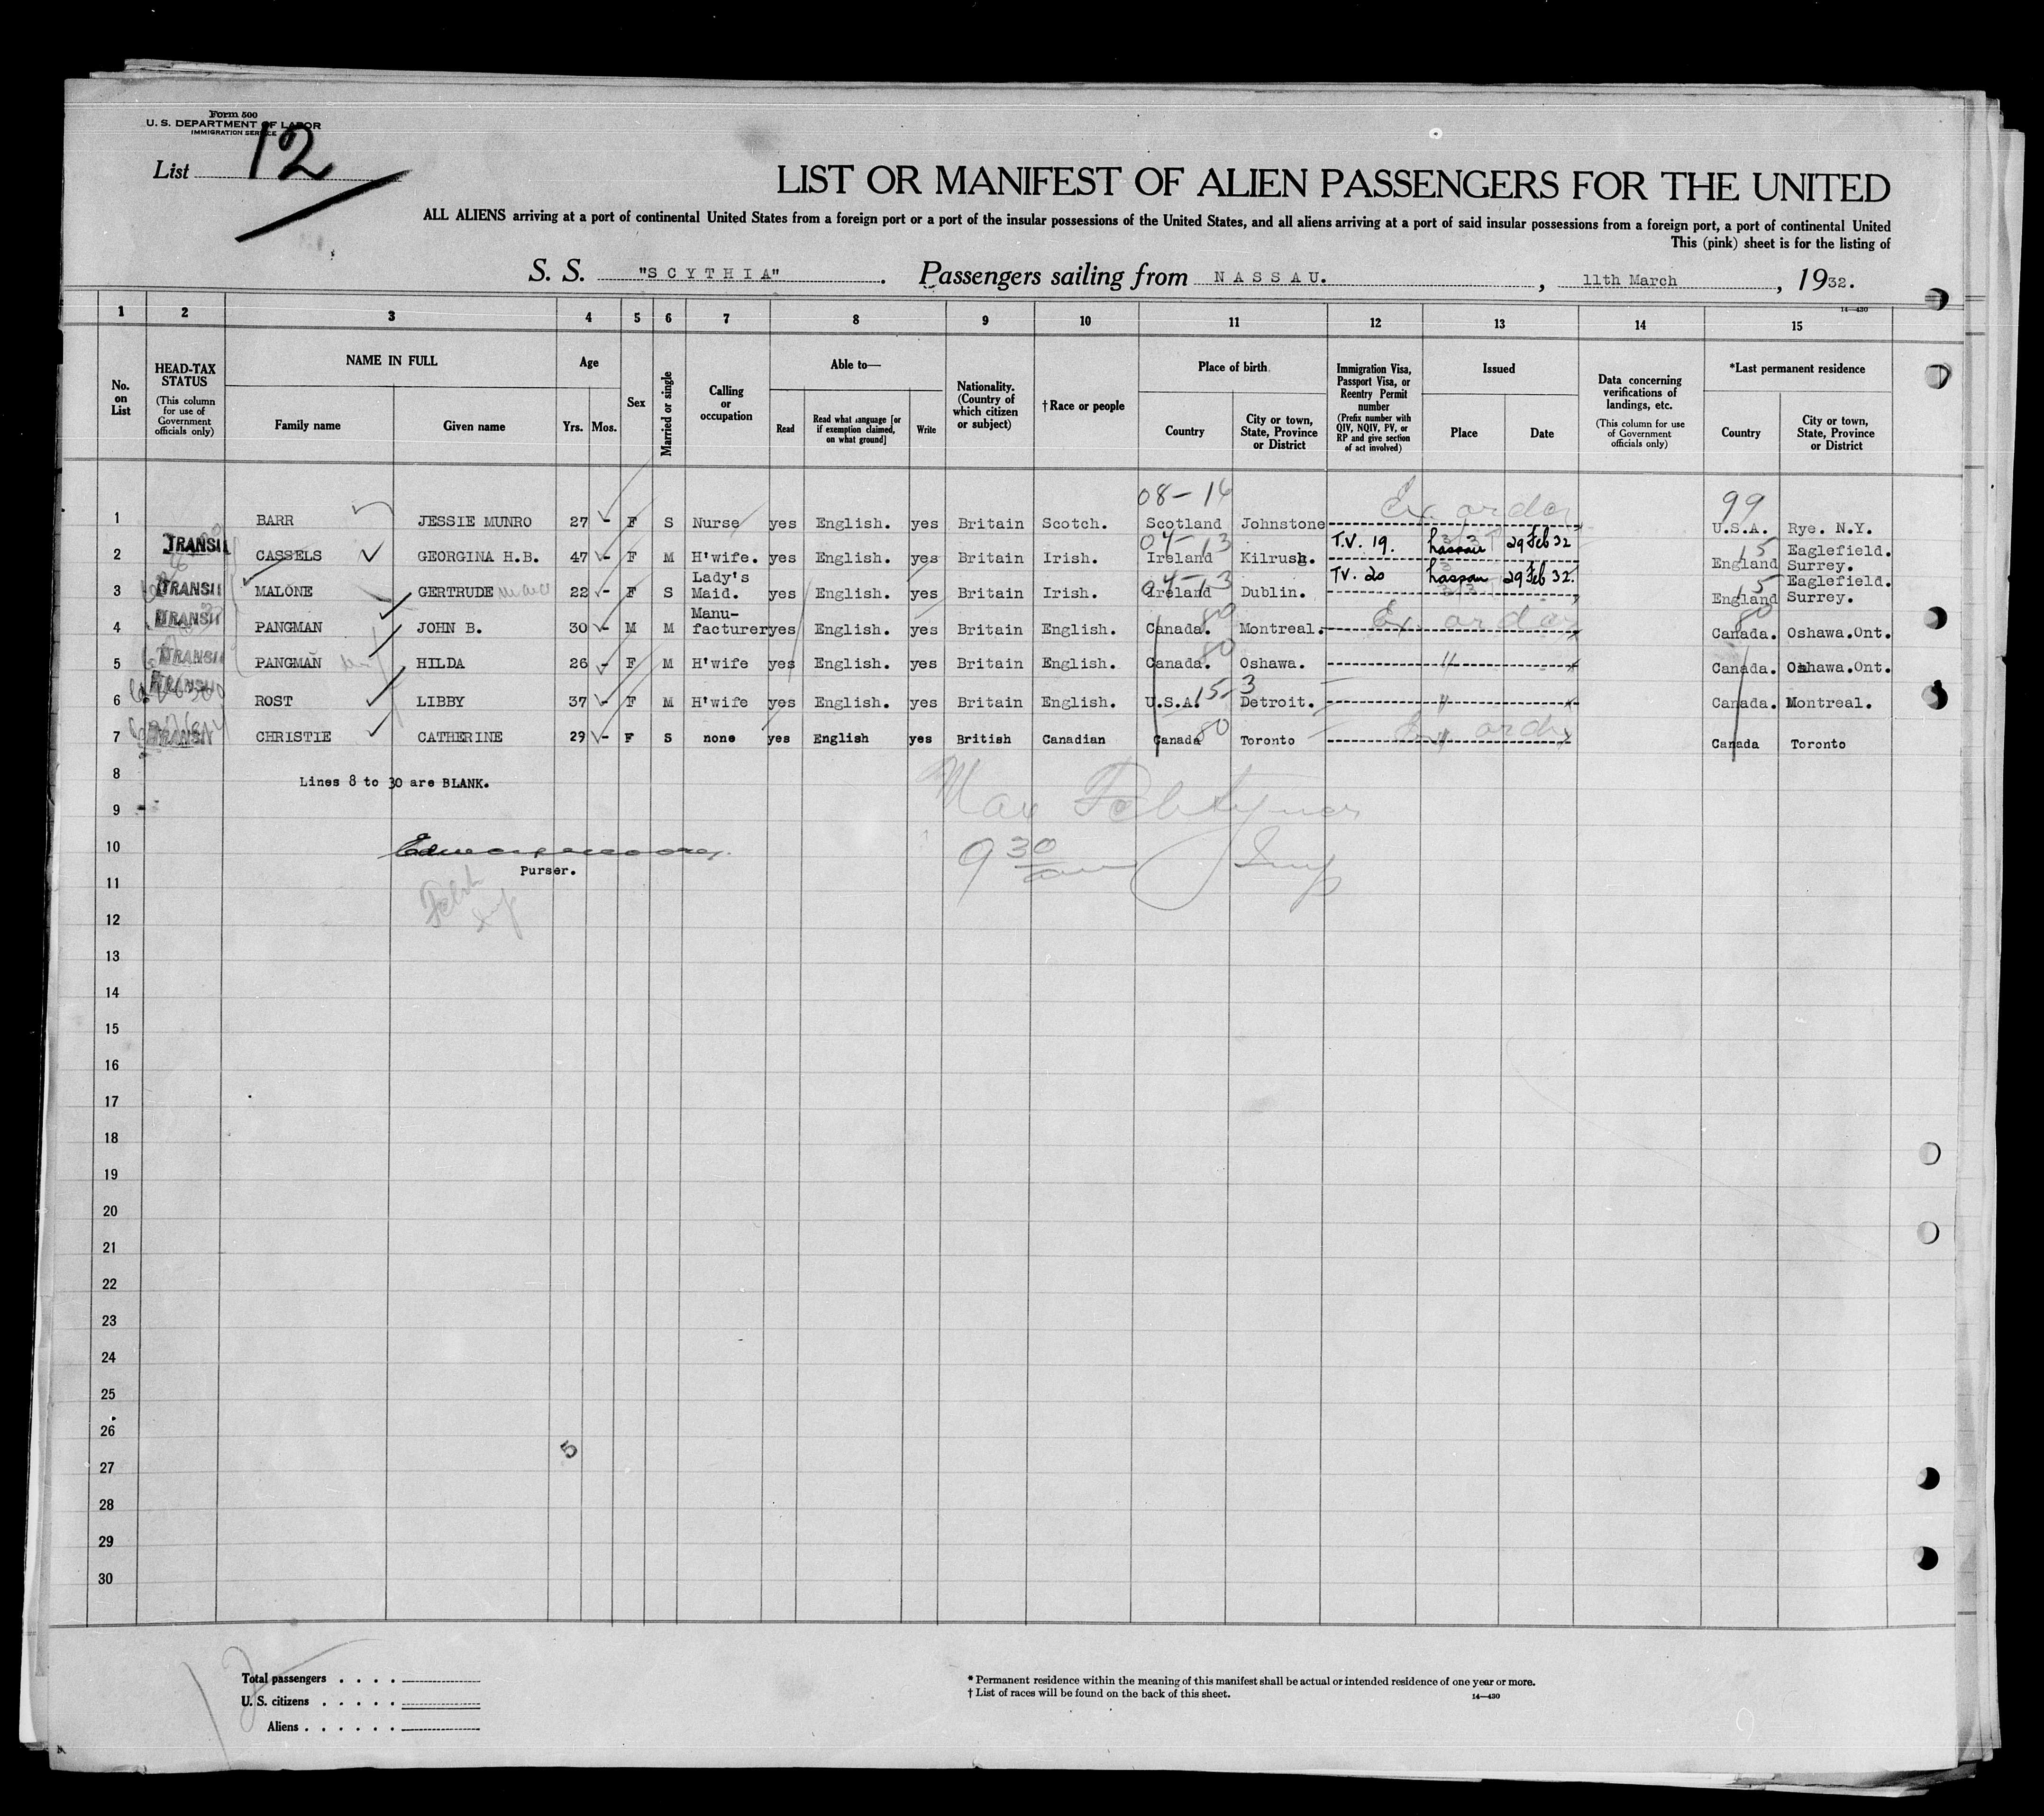 Form 500
U. S. DEPARTMENT OF LABOR
IMMIGRATION SERVICE
List 12
LIST OR MANIFEST OF ALIEN PASSENGERS FOR THE UNITED
ALL ALIENS arriving at a port of continental United States from a foreign port or a port of the insular possessions of the United States, and all aliens arriving at a port of said insular possessions from a foreign port, a port of continental United
This (pink) sheet is for the listing of
S. S. "SCYTHIA". Passengers sailing from NASSAU., 11th March, 1932.
14—430
1 2 3 4 5 6 7 8 9 10 11 12 13 14 15
No. on List
HEAD-TAX STATUS (This column for use of Government officials only)
NAME IN FULL
Family name Given name
Age
Yrs. Mos.
Sex
Married or single
Calling or occupation
Able to—
Read Read what language [or if exemption claimed, on what ground] Write
Nationality. (Country of which citizen or subject)
†Race or people
Place of birth
Country City or town, State, Province or District
Immigration Visa, Passport Visa, or Reentry Permit number (Prefix number with QIV, NQIV, PV, or RP and give section of act involved)
Issued
Place Date
Data concerning verifications of landings, etc. (This column for use of Government officials only)
*Last permanent residence
Country City or town, State, Province or District
08-16 99
1 BARR JESSIE MUNRO 27 - F S Nurse yes English. yes Britain Scotch. Scotland Johnstone Ex. order U.S.A. Rye. N.Y.
2 TRANSIT CASSELS GEORGINA H.B. 47 - F M H'wife. yes English. yes Britain Irish. 04-13 Ireland Kilrush. T.V. 19. Nassau 29 Feb 32 15 England Eaglefield. Surrey.
3 TRANSIT MALONE GERTRUDE 22 - F S Lady's Maid. yes English. yes Britain Irish. 04-13 Ireland Dublin. TV. 20 Nassau 29 Feb 32. 15 England Eaglefield. Surrey.
4 TRANSIT PANGMAN JOHN B. 30 - M M Manu- facturer yes English. yes Britain English. 80 Canada. Montreal. Ex. order 80 Canada. Oshawa.Ont.
5 TRANSIT PANGMAN HILDA 26 - F M H'wife yes English. yes Britain English. 80 Canada. Oshawa. " Canada. Oshawa.Ont.
6 TRANSIT ROST LIBBY 37 - F M H'wife yes English. yes Britain English. U.S.A. 15-3 Detroit. " Canada. Montreal.
7 TRANSIT CHRISTIE CATHERINE 29 - F S none yes English yes British Canadian Canada 80 Toronto Ex. order Canada Toronto
8 Lines 8 to 30 are BLANK.
9
10
Purser.
9 30 am
11
12
13
14
15
16
17
18
19
20
21
22
23
24
25
26
5
27
28
29
30
Total passengers
U. S. citizens
Aliens
* Permanent residence within the meaning of this manifest shall be actual or intended residence of one year or more.
† List of races will be found on the back of this sheet.
14—430